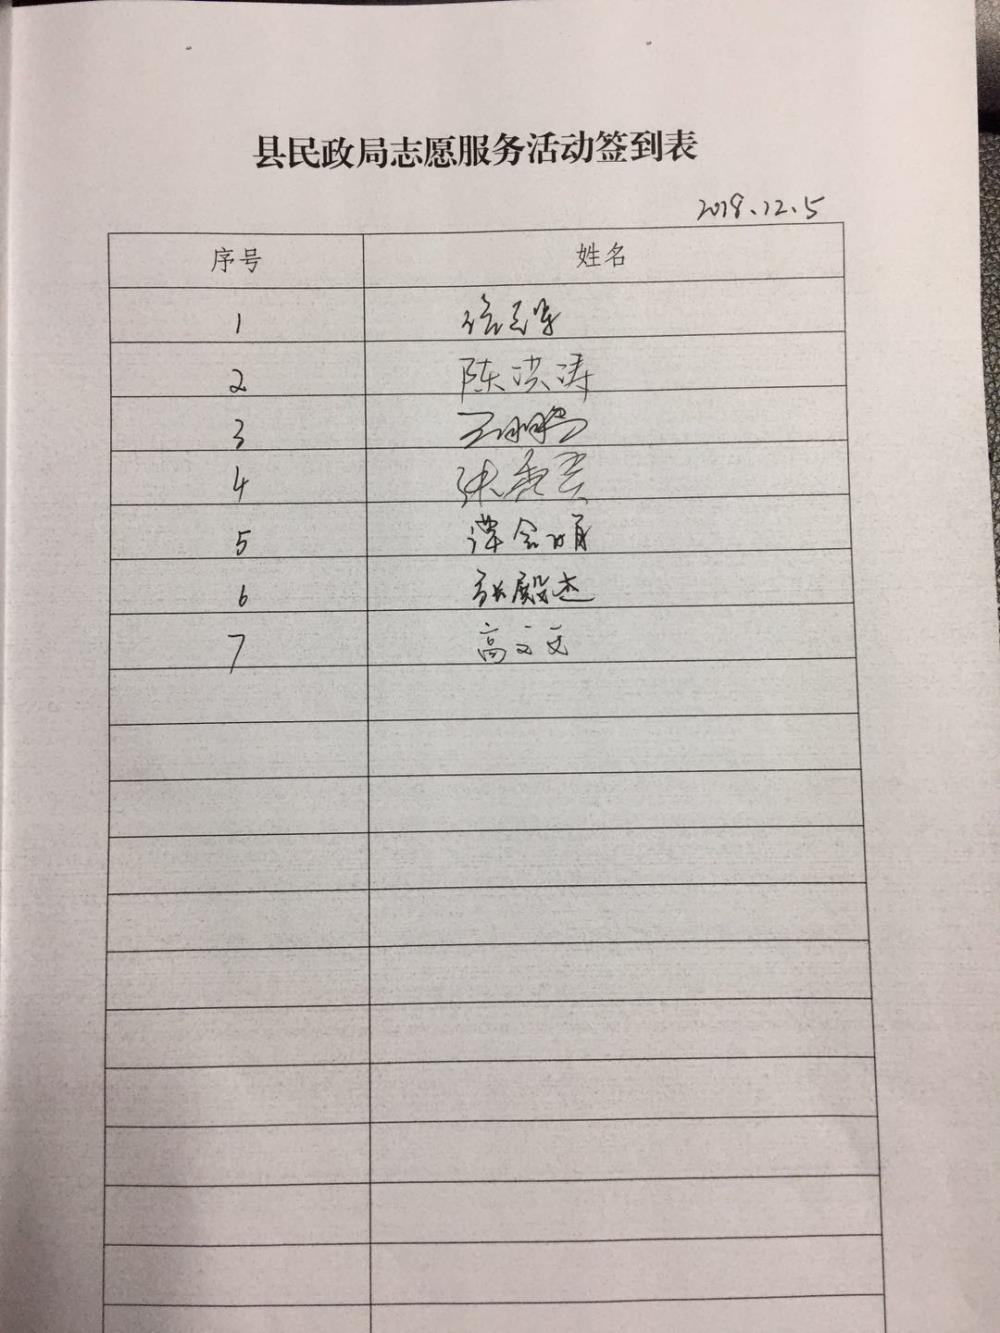 县民政局志愿服务活动签到表
2018.12.5
序号 姓名
1 徐
2 陈洪涛
3 王鹏
4 张
5 谭金娟
6 张殿杰
7 高文文